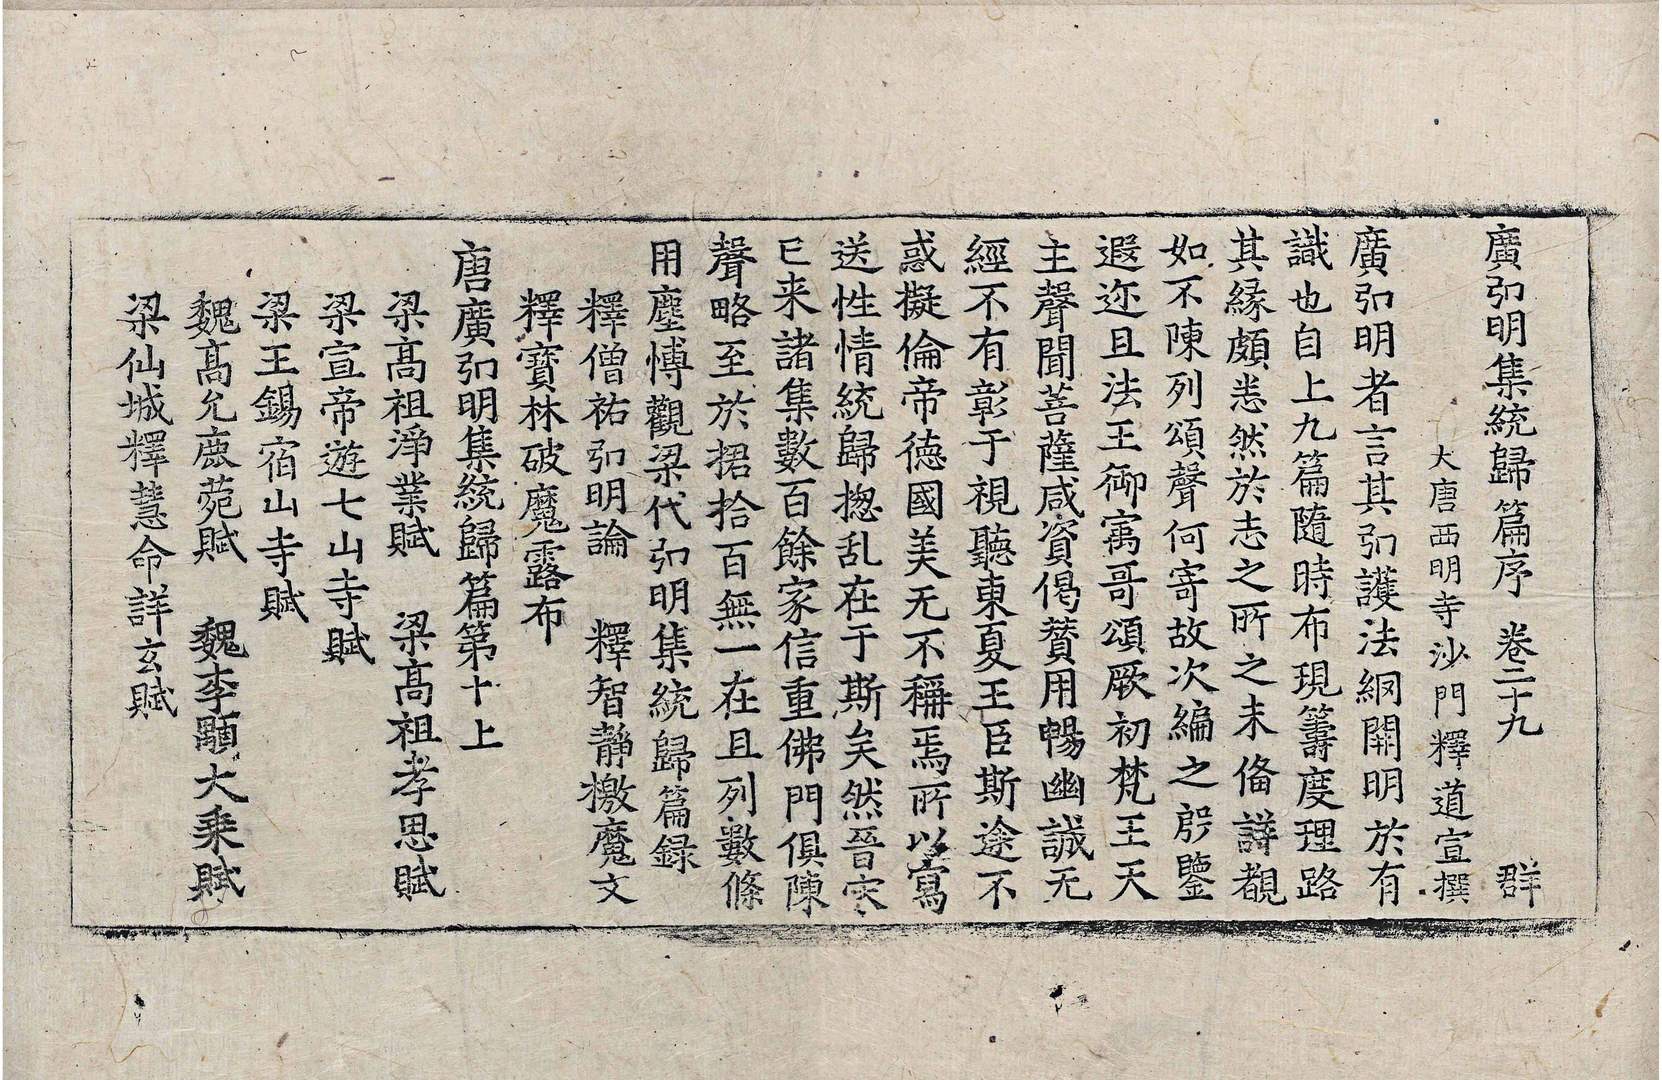 廣弘明集統歸篇序 卷二十九 群
大唐西明寺沙門釋道宣撰
廣弘明者言其弘護法網開明於有
識也自上九篇隨時布現籌度理路
其緣頗悉然於志之所之未俻詳覩
如不陳列頌聲何寄故次編之殷鑒
遐迩且法王御㝢哥頌厥初梵王天
主聲聞菩薩咸資偈賛用暢幽誠无
經不有彰于視聽東夏王臣斯途不
惑擬倫帝德國美无不稱焉所以寫
送性情統歸揔乱在于斯矣然晉宋
已来諸集數百餘家信重佛門俱陳
聲略至於捃拾百無一在且列數條
用塵愽觀梁代弘明集統歸篇録
釋僧祐弘明論 釋智靜檄魔文
釋寶林破魔露布
唐廣弘明集統歸篇第十上
梁高祖淨業賦 梁高祖孝思賦
梁宣帝遊七山寺賦
梁王錫宿山寺賦
魏高允鹿菀賦 魏李顒大乘賦
梁仙城釋慧命詳玄賦